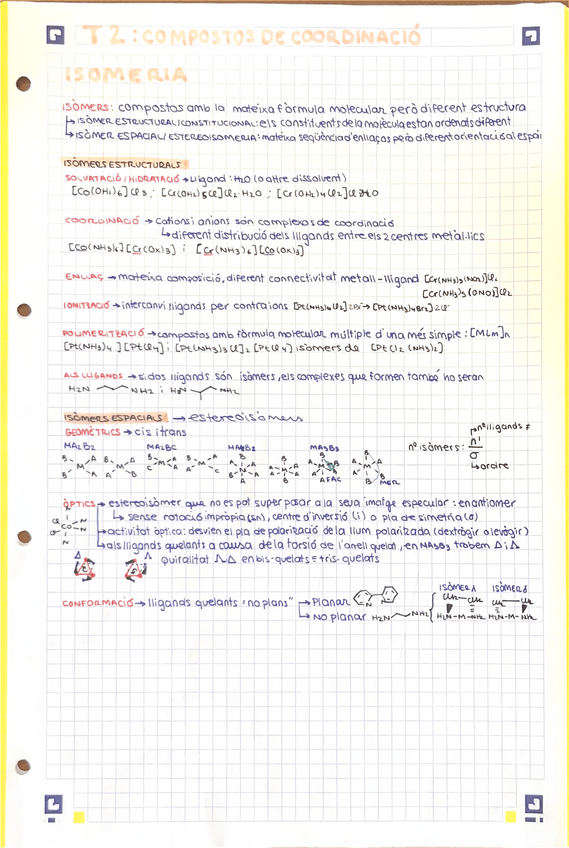 T2: COMPOSTOS DE COORDINACIÓ
ISOMERIA
ISÒMERS: compostos amb la mateixa fórmula molecular però diferent estructura
↳ ISÒMER ESTRUCTURAL/CONSTITUCIONAL: els constituents de la molècula estan ordenats diferent
↳ ISÒMER ESPACIAL/ESTEREOISOMERIA: mateixa seqüència d'enllaços però diferent orientació al espai
ISÒMERS ESTRUCTURALS
SOLVATACIÓ/HIDRATACIÓ → Lligand: H2O (o altre dissolvent)
[Co(OH2)6]Cl3 ; [Cr(OH2)5Cl]Cl2·H2O ; [Cr(OH2)4Cl2]Cl·2H2O
COORDINACIÓ → cations i anions són complexos de coordinació
↳ diferent distribució dels lligands entre els 2 centres metàl·lics
[Co(NH3)6][Cr(Ox)3] i [Cr(NH3)6][Co(Ox)3]
ENLLAÇ → mateixa composició, diferent connectivitat metall-lligand [Cr(NH3)5(NO2)]Cl2
[Cr(NH3)5(ONO)]Cl2
IONITZACIÓ → intercanvi lligands per contraions [Pt(NH3)4Cl2]2Br → [Pt(NH3)4Br2]2Cl
POLIMERITZACIÓ → compostos amb fórmula molecular múltiple d'una més simple: [MLm]n
[Pt(NH3)4][PtCl4] i [Pt(NH3)3Cl]2[PtCl4] isòmers de [PtCl2(NH3)2]
ALS LLIGANDS → si dos lligands són isòmers, els complexes que formen també ho seran
H2N NH2 i H2N NH2
ISÒMERS ESPACIALS → estereoisòmers
GEOMÈTRICS → cis i trans
nº lligands ≠
MA2B2 MA2BC MA4B2 MA3B3
nº isòmers: n!
σ
↳ ordre
FAC MER
ÒPTICS → estereoisòmer que no es pot super posar a la seva imatge especular: enantiomer
↳ sense rotació impròpia (Sn), centre d'inversió (i) o pla de simetria (σ)
→ activitat òptica: desvien el pla de polarització de la llum polarizada (dextrògir o levògir)
↳ als lligands quelants a causa de la torsió de l'anell quelat, en MA3B3 trobem Δ i Λ
Cl Co N
Δ Λ quiralitat ΛΔ en bis-quelats = tris-quelats
ISÒMER λ ISÒMER δ
CONFORMACIÓ → lligands quelants "no plans" → Planar N N
CH2 CH2 CH2 CH2
↳ No planar H2N NH2 H2N-M-NH2 H2N-M-NH2